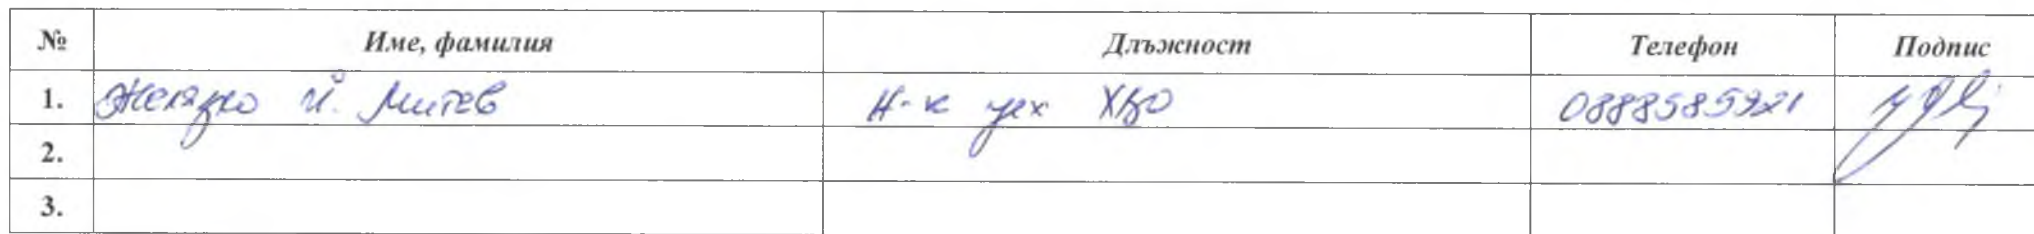 № Име, фамилия Длъжност Телефон Подпис
1. Желязко Й. Митев Н-к цех ХВО 0888585921
2.
3.